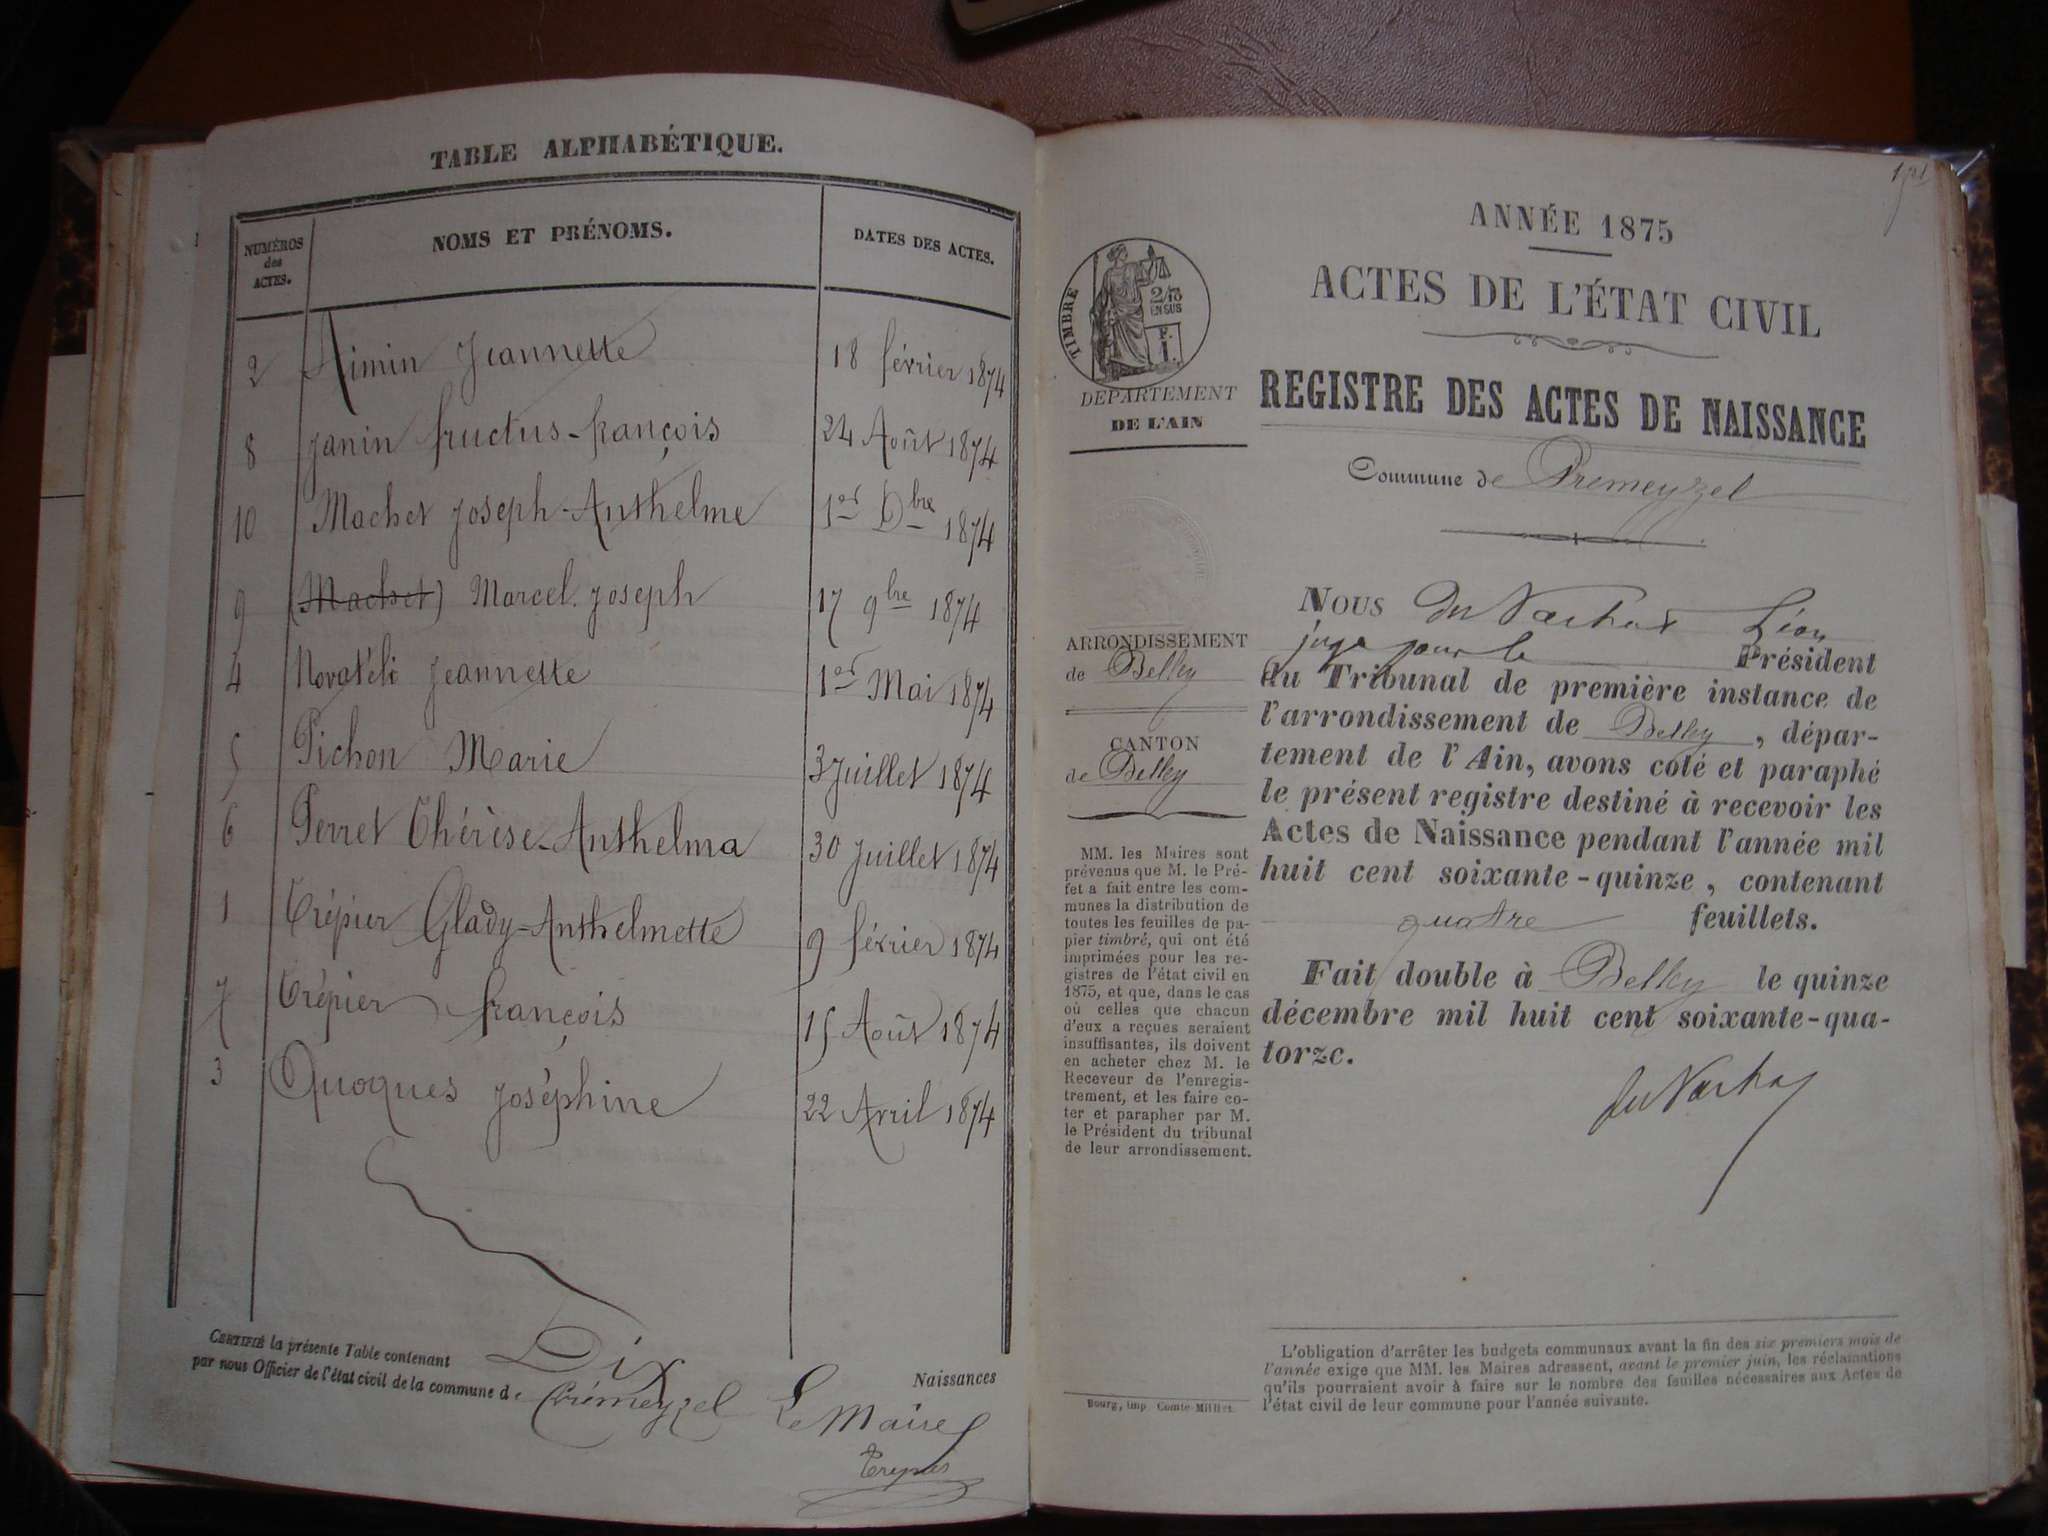 TABLE ALPHABÉTIQUE.
NUMÉROS
des
ACTES.
NOMS ET PRÉNOMS.
DATES DES ACTES.
2 Aimin Jeannette 18 février 1874
8 Janin fructus-françois 24 Août 1874
10 Machet Joseph-Anthelme 1er Dbre 1874
9 (Machet) Marcel. Joseph 17 9bre 1874
4 Jeannette 1er Mai 1874
5 Pichon Marie 3 Juillet 1874
6 Perret Thérèse-Anthelma 30 Juillet 1874
1 Trépier Glady-Anthelmette 9 février 1874
7 Trépier françois 15 Août 1874
3 Quoques Joséphine 22 Avril 1874
CERTIFIÉ la présente Table contenant Dix Naissances
par nous Officier de l'état civil de la commune de Prémeyzel Le Maire
ANNÉE 1875
ACTES DE L'ÉTAT CIVIL
REGISTRE DES ACTES DE NAISSANCE
Commune de Premeyzel
TIMBRE
2/10
EN SUS
DÉPARTEMENT
DE L'AIN
ARRONDISSEMENT
de Belley
CANTON
de Belley
MM. les Maires sont
prévenus que M. le Pré-
fet a fait entre les com-
munes la distribution de
toutes les feuilles de pa-
pier timbré, qui ont été
imprimées pour les re-
gistres de l'état civil en
1875, et que, dans le cas
où celles que chacun
d'eux a reçues seraient
insuffisantes, ils doivent
en acheter chez M. le
Receveur de l'enregis-
trement, et les faire co-
ter et parapher par M.
le Président du tribunal
de leur arrondissement.
Bourg, imp. Comte-Milliet.
NOUS Léon
juge pour le Président
du Tribunal de première instance de
l'arrondissement de Belley, dépar-
tement de l'Ain, avons coté et paraphé
le présent registre destiné à recevoir les
Actes de Naissance pendant l'année mil
huit cent soixante-quinze, contenant
quatre feuillets.
Fait double à Belley le quinze
décembre mil huit cent soixante-qua-
torze.
L'obligation d'arrêter les budgets communaux avant la fin des six premiers mois de
l'année exige que MM. les Maires adressent, avant le premier juin, les réclamations
qu'ils pourraient avoir à faire sur le nombre des feuilles nécessaires aux Actes de
l'état civil de leur commune pour l'année suivante.